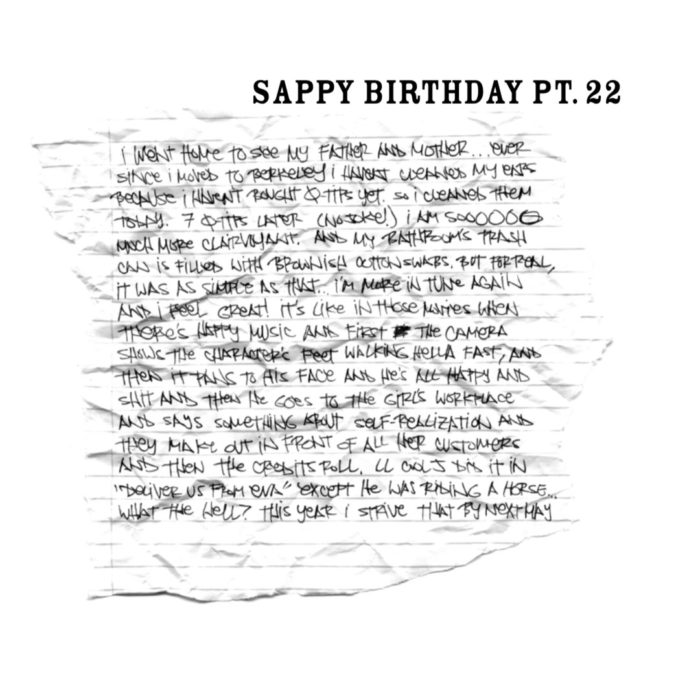 SAPPY BIRTHDAY PT. 22
i WENT HOME TO SEE MY FATHER AND MOTHER... EVER
SINCE i MOVED TO BERKELEY i HAVENT CLEANED MY EARS
BECAUSE i HAVENT BOUGHT Q-TIPS YET. SO i CLEANED THEM
TODAY. 7 Q-TIPS LATER (NO JOKE!) i AM SOOOOOO
MUCH MORE CLAIRVOYANT. AND MY BATHROOM'S TRASH
CAN IS FILLED WITH BROWNISH COTTON SWABS. BUT FOR REAL,
IT WAS AS SIMPLE AS THAT.. i'M MORE IN TUNE AGAIN
AND i FEEL GREAT! IT'S LIKE IN THOSE MOVIES WHEN
THERE'S HAPPY MUSIC AND FIRST THE CAMERA
SHOWS THE CHARACTER'S FEET WALKING HELLA FAST, AND
THEN IT PANS TO HIS FACE AND HE'S ALL HAPPY AND
SHIT AND THEN HE GOES TO THE GIRL'S WORKPLACE
AND SAYS SOMETHING ABOUT SELF-REALIZATION AND
THEY MAKE OUT IN FRONT OF ALL HER CUSTOMERS
AND THEN THE CREDITS ROLL. LL COOL J DID IT IN
"DELIVER US FROM EVA" EXCEPT HE WAS RIDING A HORSE...
WHAT THE HELL? THIS YEAR i STRIVE THAT BY NEXT MAY